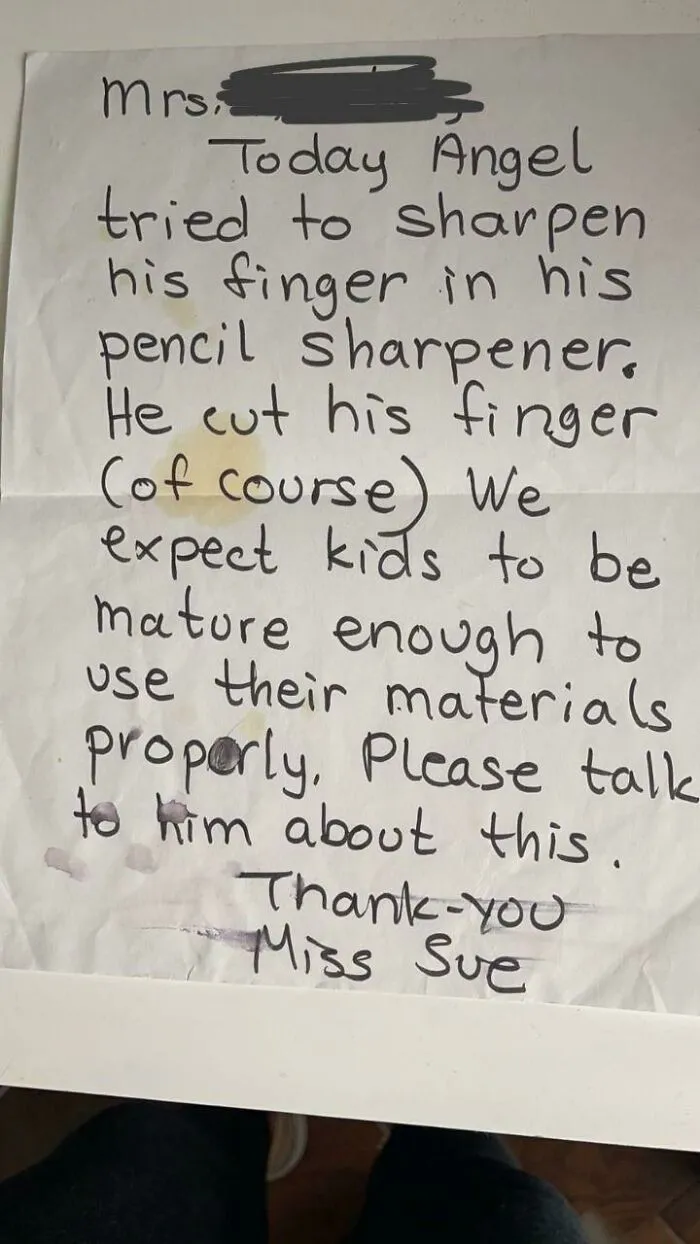 Mrs.
Today Angel
tried to sharpen
his finger in his
pencil sharpener.
He cut his finger
(of course) We
expect kids to be
mature enough to
use their materials
properly. Please talk
to him about this.
Thank-you
Miss Sue